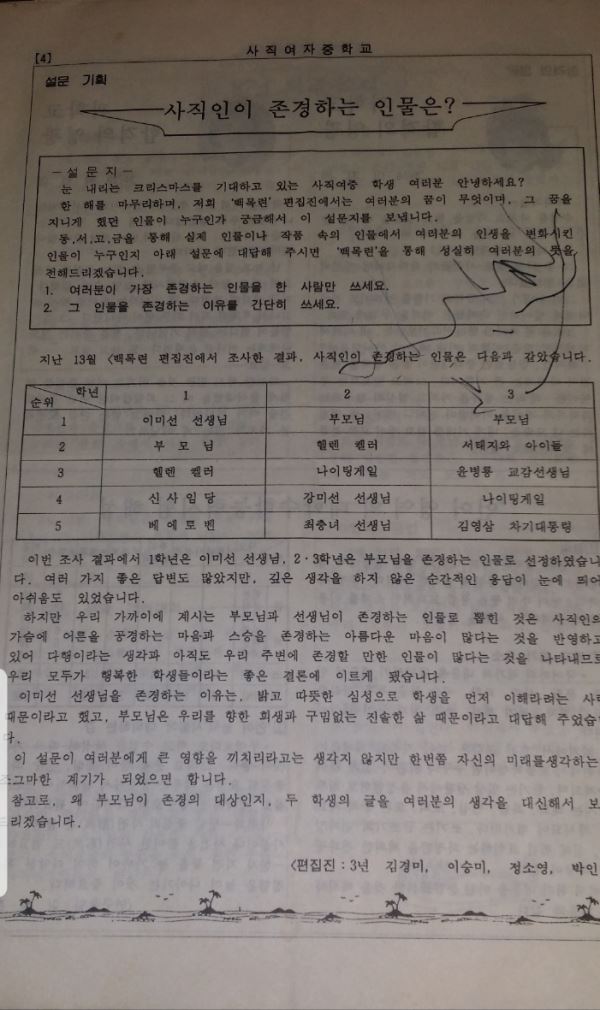 [4]
사직여자중학교
설문 기획
사직인이 존경하는 인물은?
— 설 문 지 —
눈 내리는 크리스마스를 기대하고 있는 사직여중 학생 여러분 안녕하세요?
한 해를 마무리하며, 저희 '백목련' 편집진에서는 여러분의 꿈이 무엇이며, 그 꿈을
지니게 했던 인물이 누구인가 궁금해서 이 설문지를 보냅니다.
동,서,고,금을 통해 실제 인물이나 작품 속의 인물에서 여러분의 인생을 변화시킨
인물이 누구인지 아래 설문에 대답해 주시면 '백목련'을 통해 성실히 여러분의 뜻을
전해드리겠습니다.
1. 여러분이 가장 존경하는 인물을 한 사람만 쓰세요.
2. 그 인물을 존경하는 이유를 간단히 쓰세요.
지난 13월 〈백목련 편집진에서 조사한 결과, 사직인이 존경하는 인물은 다음과 같았습니다.
학년 순위 1 2 3
1 이미선 선생님 부모님 부모님
2 부 모 님 헬렌 켈러 서태지와 아이들
3 헬렌 켈러 나이팅게일 윤병룡 교감선생님
4 신 사 임 당 강미선 선생님 나이팅게일
5 베 에 토 벤 최충녀 선생님 김영삼 차기대통령
이번 조사 결과에서 1학년은 이미선 선생님, 2·3학년은 부모님을 존경하는 인물로 선정하였습니
다. 여러 가지 좋은 답변도 많았지만, 깊은 생각을 하지 않은 순간적인 응답이 눈에 띄어
아쉬움도 있었습니다.
하지만 우리 가까이에 계시는 부모님과 선생님이 존경하는 인물로 뽑힌 것은 사직인의
가슴에 어른을 공경하는 마음과 스승을 존경하는 아름다운 마음이 많다는 것을 반영하고
있어 다행이라는 생각과 아직도 우리 주변에 존경할 만한 인물이 많다는 것을 나타내므로
우리 모두가 행복한 학생들이라는 좋은 결론에 이르게 됐습니다.
이미선 선생님을 존경하는 이유는, 밝고 따뜻한 심성으로 학생을 먼저 이해라려는 사
때문이라고 했고, 부모님은 우리를 향한 희생과 구밈없는 진솔한 삶 때문이라고 대답해 주었습
다.
이 설문이 여러분에게 큰 영향을 끼치리라고는 생각지 않지만 한번쯤 자신의 미래를생각하는
조그마한 계기가 되었으면 합니다.
참고로, 왜 부모님이 존경의 대상인지, 두 학생의 글을 여러분의 생각을 대신해서 보
드리겠습니다.
〈편집진 : 3년 김경미, 이승미, 정소영, 박인